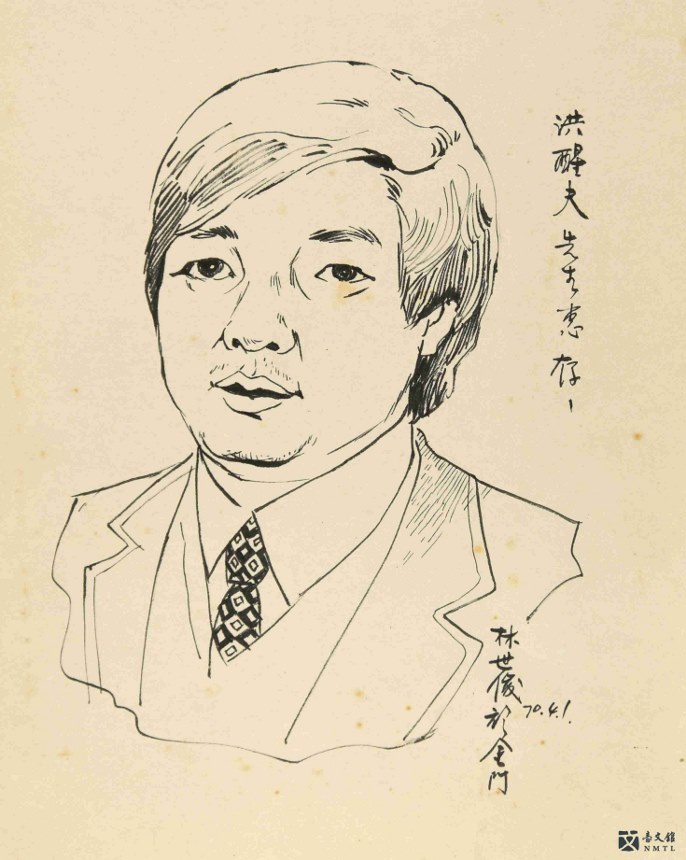 洪醒夫先生惠存
林世俊於金門
70.4.1.
臺文館
NMTL